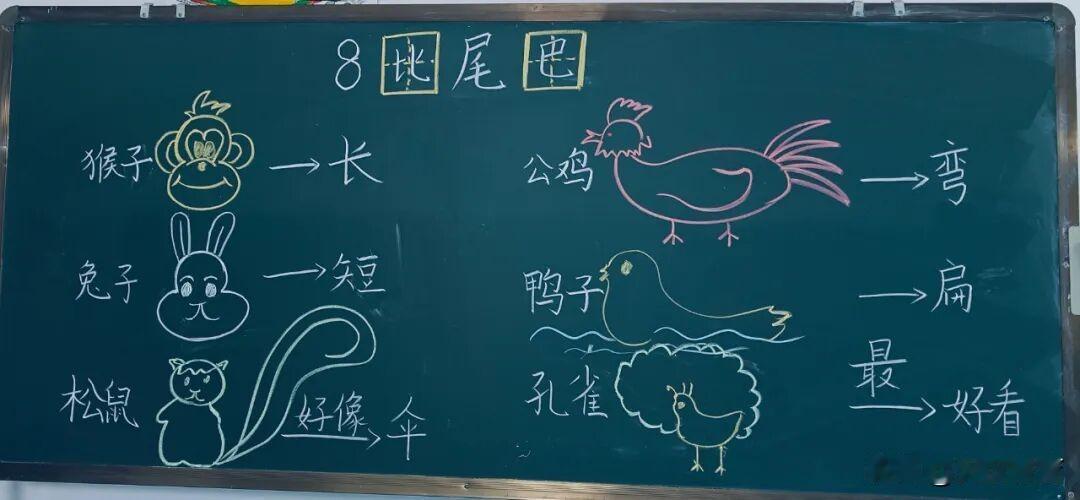 8 比尾巴
猴子 → 长
兔子 → 短
松鼠 好像 → 伞
公鸡 → 弯
鸭子 → 扁
孔雀 最 → 好看